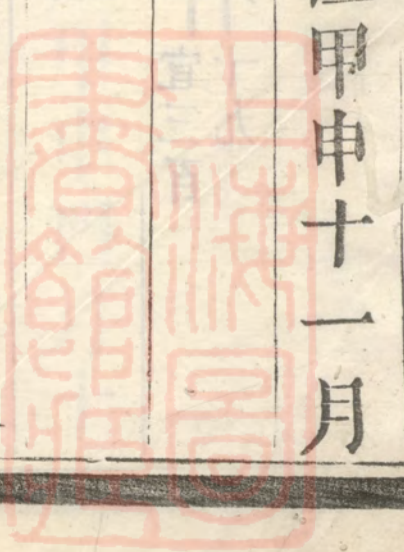 甲申十一月
上海圖
書館藏